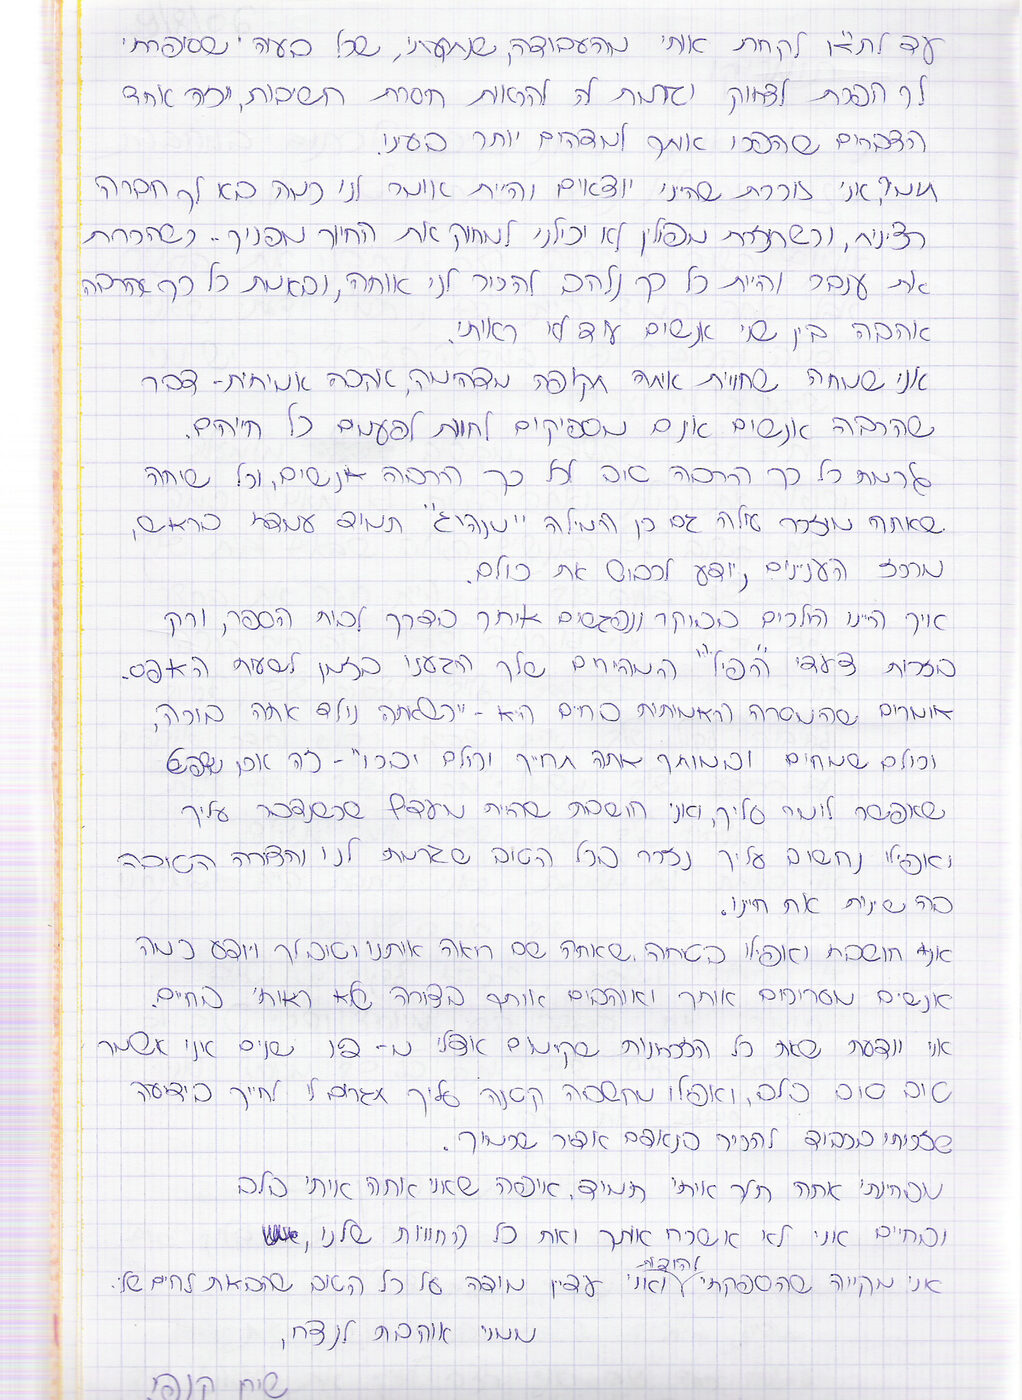 לקחת אותי מהעבודה שנתקעתי, שכל בעיה שסיפרתי
לך הפכת לצחוק וגרמת לה להראות חסרת חשיבות, וזה אחד
הדברים שהפכו אותך למדהים יותר בעיני.
אני זוכרת שהיינו יוצאים והיית אומר לנו כמה בא לך חברה
רצינית, וכשחזרת מפולין לא יכולנו למחוק את החיוך מפניך.. כשהכרת
את ענבר והיית כל כך נלהב להכיר לנו אותה, ובאמת כל כך הרבה
אהבה בין שני אנשים עוד לא ראיתי.
אני שמחה שחווית איתה תקופה מדהימה, אהבה אמיתית - דבר
שהרבה אנשים אינם מספיקים לחוות לפעמים כל חייהם.
גרמת כל כך הרבה טוב לכל כך הרבה אנשים, וכל שיחה
שאתה מוזכר עולה גם כן המילה "מנהיג" תמיד עמדת בראש,
מרכז העניינים, יודע לכבוש את כולם.
איך היינו הולכים בבוקר ונפגשים איתך בדרך לבית הספר, ורק
בזכות צעדי "הפיל" המהירים שלך הגענו בזמן לשעות האפס.
אומרים שהמטרה האמיתית בחיים היא - "כשאתה נולד אתה בוכה,
וכולם שמחים ובמותך אתה תחייך וכולם יבכו" - זה אכן משפט
שאפשר לומר עליך, ואני חושבת שהיית מעדיף שכשנדבר עליך
ואפילו נחשוב עליך נזכר בכל הטוב שגרמת לנו והצורה הטובה
בה שינית את חיינו.
אני חושבת ואפילו בטוחה, שאתה שם רואה אותנו וטוב לך ויודע כמה
אנשים מעריכים אותך ואוהבים אותך בצורה שלא ראיתי בחיים.
אני יודעת שאת כל הזכרונות שקיימים אצלי מ- שנים אני אשמר
טוב טוב בלב, ואפילו מחשבה קטנה עליך תגרום לי לחייך בידיעה
שזכיתי בכבוד להכיר בנאדם אדיר שכמוך.
מבחינתי אתה תלך איתי תמיד, איפה שאני אתה איתי בלב
ובחיים אני לא אשכח אותך ואת כל החוויות שלנו,
אני מקווה שהספקתי להודות ואני עדיין מודה על כל הטוב שהבאת לחיים שלי.
ממני אוהבת לנצח,